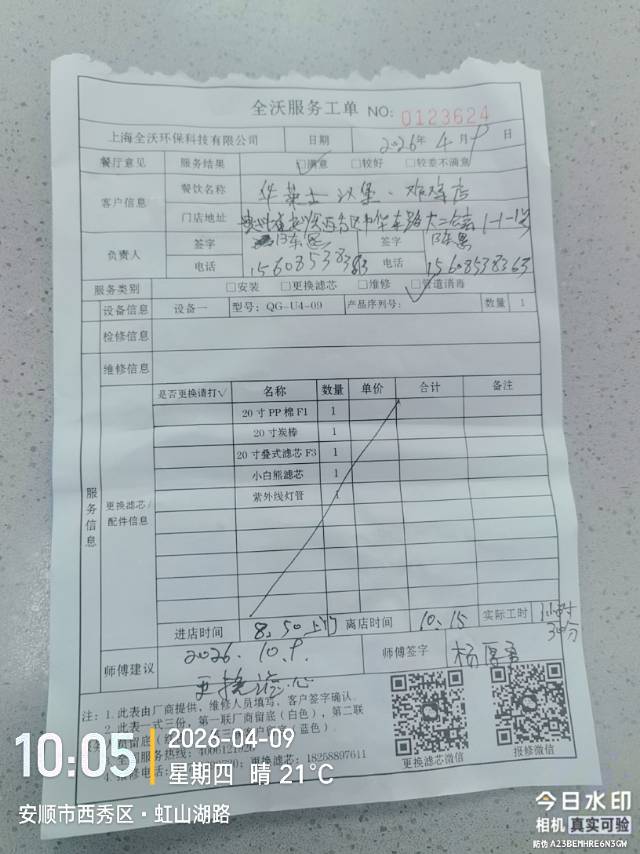 全沃服务工单 NO: 0123624
上海全沃环保科技有限公司 日期 2026年4月9日
餐厅意见 服务结果 ☑满意 □较好 □较差不满意
客户信息 餐饮名称 华莱士汉堡·炸鸡店
门店地址 中华东路 1-1-1号
负责人 签字 签字
电话 15608538383 电话 15608538363
服务类别 □安装 □更换滤芯 □维修 ☑管道消毒
设备信息 设备一 型号: QG-U4-09 产品序列号: 数量 1
检修信息
维修信息
服务信息 更换滤芯/配件信息 是否更换请打√ 名称 数量 单价 合计 备注
20寸PP棉F1 1
20寸炭棒 1
20寸叠式滤芯F3 1
小白熊滤芯 1
紫外线灯管 1
进店时间 8.50上门 离店时间 10.15 实际工时 1小时30分
师傅建议 2026.10.9. 更换滤芯 师傅签字 杨厚勇
注: 1.此表由厂商提供, 维修人员填写, 客户签字确认.
2.此表一式三份, 第一联厂商留底(白色), 第二联
蓝色).
服务热线: 4006121026
维修电话: 更换滤芯: 18258897611
更换滤芯微信 报修微信
10:05 2026-04-09
星期四 晴 21°C
安顺市西秀区·虹山湖路
今日水印
相机 真实可验
防伪 A23BEMHRE6N3GW